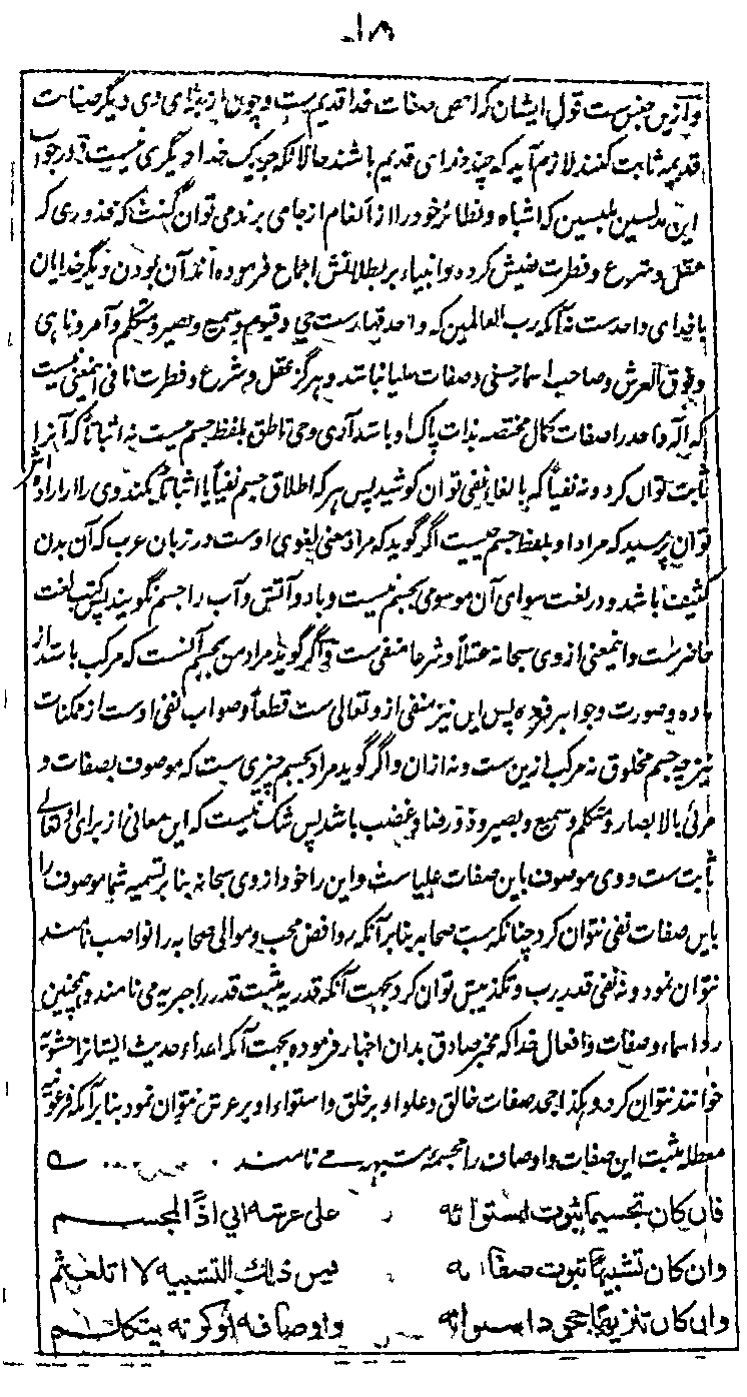 وازین جنس ست قول ایشان که اخص صفات خدا قدیم ست و چون از برای وی دیگر صفات
قدیمه ثابت کنند لازم آید که چند خدای قدیم باشند حالانکه جز یک خدا دیگری نیست و در جواب
این مدلسین ملبسین که اشباه و نظائر خود را از انعام از جا می برند می توان گفت که محذوری که
عقل و شرع و فطرت نفیش کرده و انبیاء بر بطلانش اجماع فرموده اند آن بودن دیگر خدایان
با خدای واحد ست نه آنکه رب العالمین که واحد قهار ست حی و قیوم و سمیع و بصیر و متکلم و آمر و ناهی
و فوق العرش و صاحب اسماء حسنی و صفات علیا نباشد و هرگز عقل و شرع و فطرت نافی اینمعنی نیست
که اله واحد را صفات کمال مختصه بذات پاک او باشد آری وحی ناطق بلفظ جسم نیست نه اثباتا که آنرا
ثابت توان کرد و نه نفیا که بالغاء نفی توان کوشید پس هر که اطلاق جسم نفیا یا اثباتا بکند وی را از اراده اش
توان پرسید که مراد او بلفظ جسم چیست اگر گوید که مراد معنی لغوی اوست در زبان عرب که آن بدن
کثیف باشد و در لغت سوای آن موسوم بجسم نیست و باد و آتش و آب را جسم نگویند پس کتب لغت
حاضرست و اینمعنی از وی سبحانه عقلا و شرعا منفی ست و اگر گوید مراد من بجسم آنست که مرکب باشد از
ماده و صورت و جواهر فرده پس این نیز منفی از وتعالی ست قطعا و صواب نفی اوست از ممکنات
نیز چه جسم مخلوق نه مرکب ازین ست و نه ازان و اگر گوید مراد بجسم چیزی ست که موصوف بصفات و
مرئی بالابصار و متکلم و سمیع و بصیر و ذو رضا و غضب باشد پس شک نیست که این معانی از برای اوتعالی
ثابت ست و وی موصوف باین صفات علیاست و این را خود از وی سبحانه بنابر تسمیه شما موصوف را
باین صفات نفی نتوان کرد چنانکه سب صحابه بنابر آنکه روافض محب و موالی صحابه را نواصب نامند
نتوان نمود و نه نفی قدر رب و تکذیبش توان کرد بجهت آنکه قدریه مثبت قدر را جبریه می نامند و همچنین
رد اسماء و صفات و افعال خدا که مخبر صادق بدان اخبار فرموده بجهت آنکه اعداء حدیث ایشانرا حشویه
خوانند نتوان کرد و هکذا جحد صفات خالق و علو او بر خلق و استواء او بر عرش نتوان نمود بنابر آنکه فرعونیه
معطله مثبت این صفات و اوصاف را مجسمه مشبهه می نامند
فان کان تجسیما ثبوت استوائه علی عرشه انی اذًا لمجسم
وان کان تشبیها ثبوت صفاته فمن ذلک التشبیه لا اتلعثم
وان کان تنزیها جحود استوائه واوصافه او کونه یتکلم